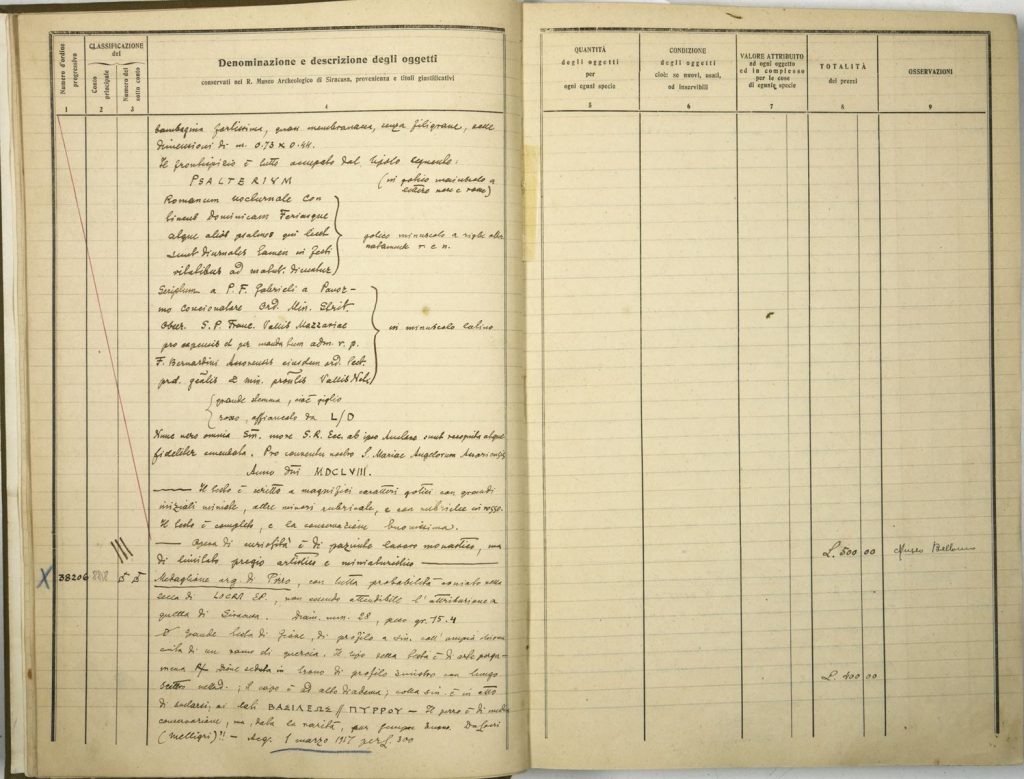 Numero d'ordine progressivo
CLASSIFICAZIONE del
Conto principale
Numero del sotto conto
Denominazione e descrizione degli oggetti
conservati nel R. Museo Archeologico di Siracusa, provenienza e titoli giustificativi
1 2 3 4
bambagina fortissima, quasi membranacea, senza filigrane, delle
dimensioni di m. 0.73 x 0.44.
Il frontispizio è tutto occupato dal titolo seguente:
PSALTERIUM (in gotico maiuscolo a
lettere nere e rosse)
Romanum nocturnale con
tinens Dominicam Feriasque
atque alios psalmos qui licet
sunt diurnales tamen in festi
vitatibus ad matut. dicuntur
gotico minuscolo a righe alter
natamente r. e n.
Scriptum a P. F. Gabrieli a Panor-
mo Concionatore Ord. Min. Strit.
Obser. S. P. Franc. Vallis Mazzariae
pro expensis et per mandatum adm. r. p.
F. Bernardini ejusdem ord. Lect.
2 min. Vallis
in minuscolo latino
grande stemma, cioè giglio
rosso, affiancato da L/D
Nunc vero omnia more S. R. Ecc. ab ipso sunt recognita atque
fideliter emendata. Pro conventu nostro S. Mariae Angelorum
Anno Dni MDCLVIII.
— Il testo è scritto a magnifici caratteri gotici con grandi
iniziali miniate, altre minori rubricate, e con rubriche in rosso.
Il testo è completo, e la conservazione buonissima.
— Opera di curiosità e di paziente lavoro monastico, ma
di limitato pregio artistico e miniaturistico —
X 38206 5 5 Medaglione arg. di Pirro, con tutta probabilità coniato nella
zecca di LOCRI EP., non essendo attendibile l'attribuzione a
quella di Siracusa. Diam. mm. 28, peso gr. 15.4
D/ Grande testa di Giove, di profilo a sin. coll'ampia chioma
cinta di un ramo di quercia. Il tipo della testa è di arte perga-
mena R/ Dione seduta in trono di profilo sinistro con lungo
scettro nella d.; il capo è ad alto diadema; colla sin. è in atto
di ai lati ΒΑΣΙΛΕΩΣ // ΠΥΡΡΟΥ — Il pezzo è di mediocre
conservazione, ma, data la rarità, pur sempre buono. Da Locri
(Melligrì?) — Acq. 1 marzo 1917 per L. 300
QUANTITÀ degli oggetti per ogni egual specie
CONDIZIONE degli oggetti cioè: se nuovi, usati, od inservibili
VALORE ATTRIBUITO ad ogni oggetto ed in complesso per le cose di eguale specie
TOTALITÀ dei prezzi
OSSERVAZIONI
5 6 7 8 9
L. 500 00 Museo Bellomo
L. 400 00